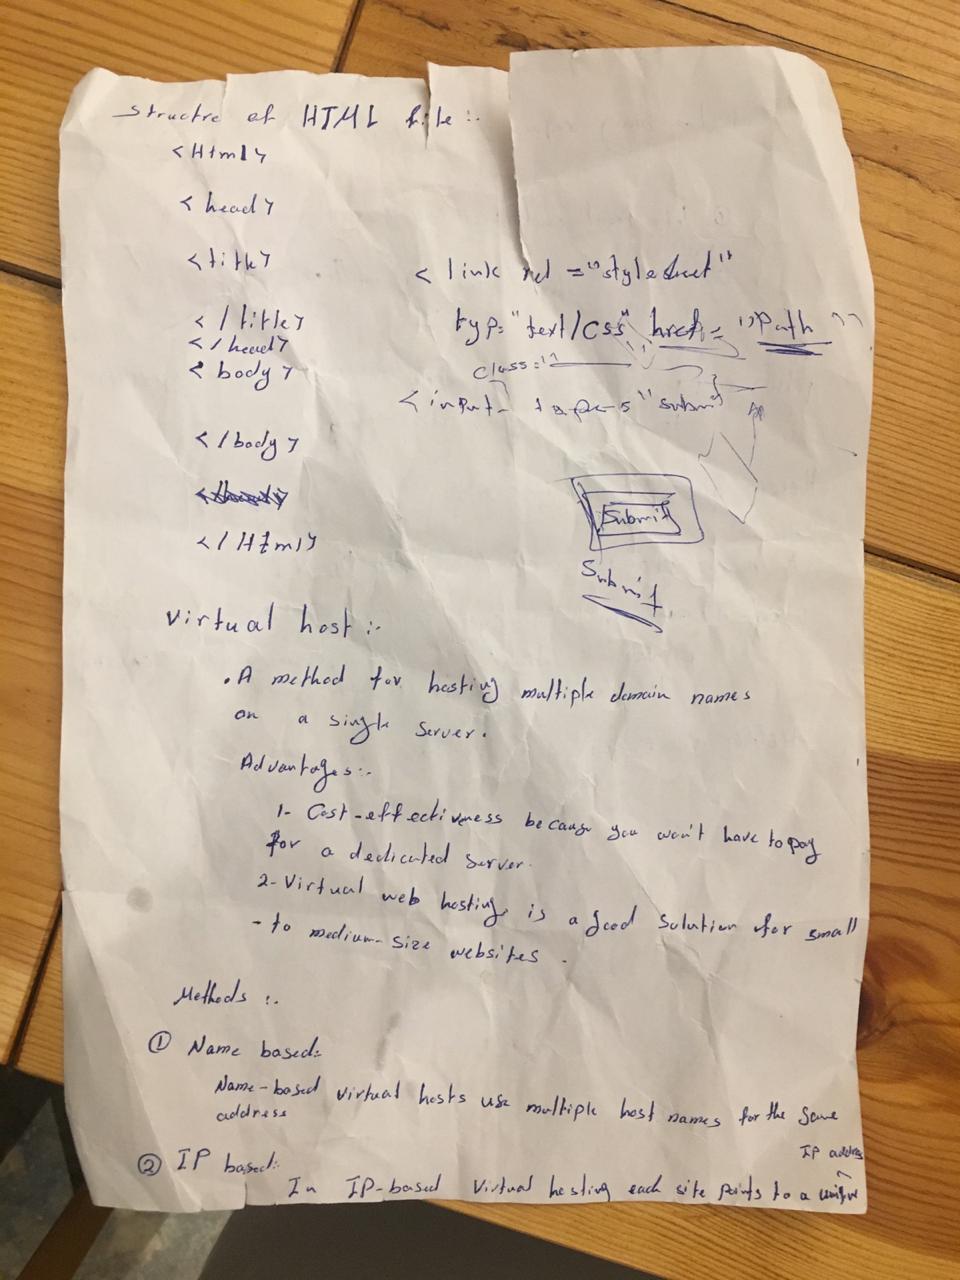 structre of HTML file :-
<Html>
<head>
<title>
</title>
</head>
<body>
</body>
</Html>
< link rel ="stylesheet"
typ= "text/css" href= "Path"
class="
<input type= "submit
Submit
Submit
Virtual host :-
. A method for hosting multiple domain names
on a single server.
Advantages :-
1- Cost-effectiveness because you won't have to pay
for a dedicated server.
2- Virtual web hosting is a good solution for small
- to medium-size websites .
Methods :-
① Name based:
Name-based virtual hosts use multiple host names for the same
address
② IP based:
In IP-based virtual hosting each site points to a unique
IP address